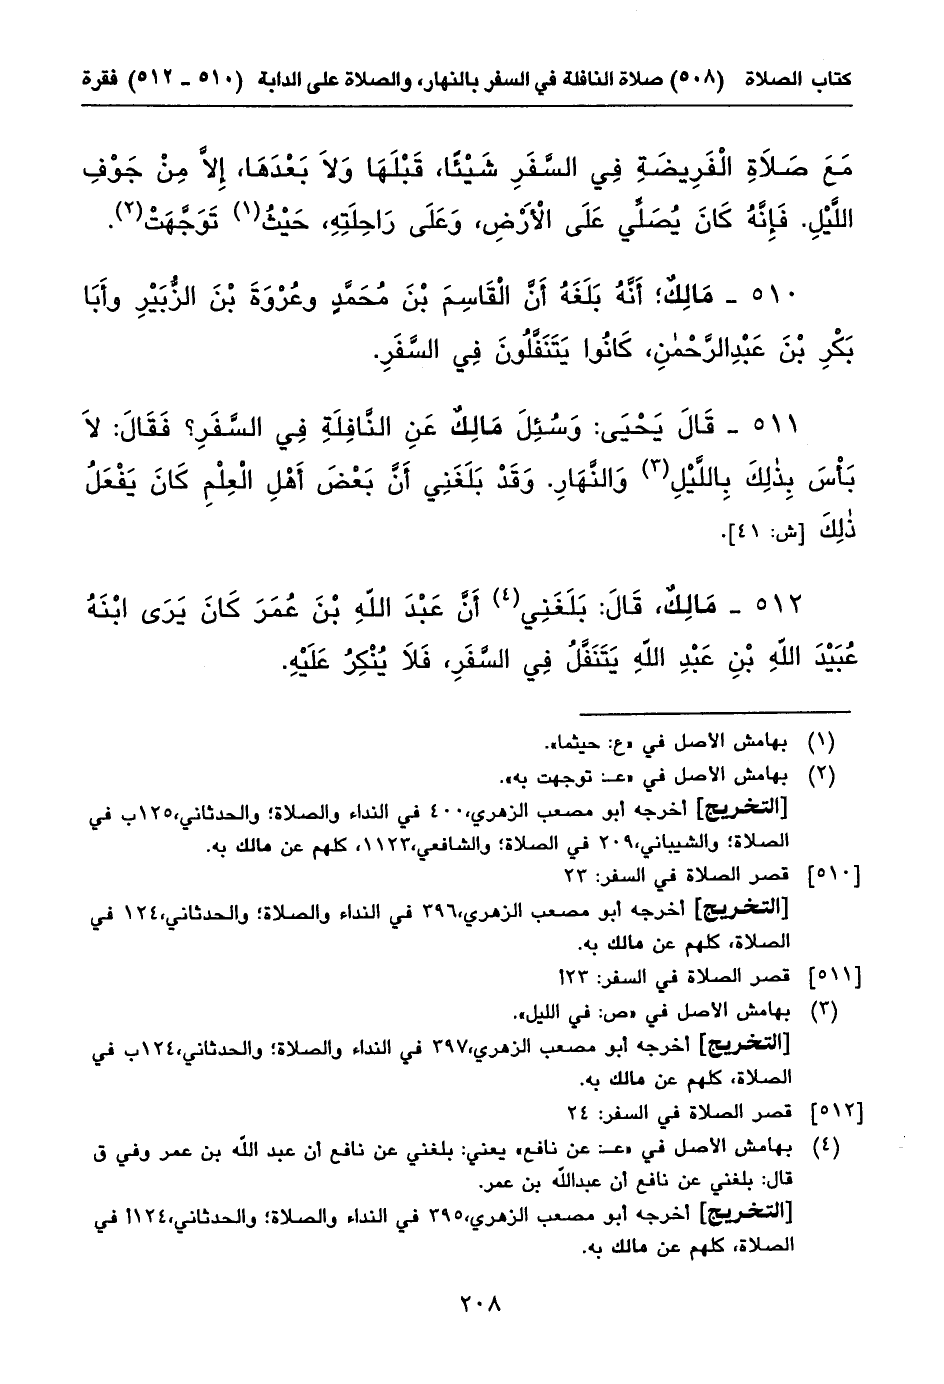 كتاب الصلاة (٥٠٨) صلاة النافلة في السفر بالنهار، والصلاة على الدابة (٥١٠ - ٥١٢) فقرة
مَعَ صَلَاةِ الْفَرِيضَةِ فِي السَّفَرِ شَيْئًا، قَبْلَهَا وَلاَ بَعْدَهَا، إِلاَّ مِنْ جَوْفِ
اللَّيْلِ. فَإِنَّهُ كَانَ يُصَلِّي عَلَى الْأَرْضِ، وَعَلَى رَاحِلَتِهِ، حَيْثُ(١) تَوَجَّهَتْ(٢).
٥١٠ - مَالِكٌ؛ أَنَّهُ بَلَغَهُ أَنَّ الْقَاسِمَ بْنَ مُحَمَّدٍ وعُرْوَةَ بْنَ الزُّبَيْرِ وأَبَا
بَكْرِ بْنَ عَبْدِالرَّحْمٰنِ، كَانُوا يَتَنَفَّلُونَ فِي السَّفَرِ.
٥١١ - قَالَ يَحْيَى: وَسُئِلَ مَالِكٌ عَنِ النَّافِلَةِ فِي السَّفَرِ؟ فَقَالَ: لاَ
بَأْسَ بِذٰلِكَ بِاللَّيْلِ(٣) وَالنَّهَارِ. وَقَدْ بَلَغَنِي أَنَّ بَعْضَ أَهْلِ الْعِلْمِ كَانَ يَفْعَلُ
ذٰلِكَ [ش: ٤١].
٥١٢ - مَالِكٌ، قَالَ: بَلَغَنِي(٤) أَنَّ عَبْدَ اللَّهِ بْنَ عُمَرَ كَانَ يَرَى ابْنَهُ
عُبَيْدَ اللَّهِ بْنِ عَبْدِ اللَّهِ يَتَنَفَّلُ فِي السَّفَرِ، فَلَا يُنْكِرُ عَلَيْهِ.
(١) بهامش الاصل في «ع: حيثما».
(٢) بهامش الاصل في «عـ: توجهت به».
[التخريج] أخرجه أبو مصعب الزهري، ٤٠٠ في النداء والصلاة؛ والحدثاني، ١٢٥ب في
الصلاة؛ والشيباني، ٢٠٩ في الصلاة؛ والشافعي، ١١٢٣، كلهم عن مالك به.
[٥١٠] قصر الصلاة في السفر: ٢٣
[التخريج] أخرجه أبو مصعب الزهري، ٣٩٦ في النداء والصلاة؛ والحدثاني، ١٢٤ في
الصلاة، كلهم عن مالك به.
[٥١١] قصر الصلاة في السفر: ٢٣أ
(٣) بهامش الاصل في «ص: في الليل».
[التخريج] أخرجه أبو مصعب الزهري، ٣٩٧ في النداء والصلاة؛ والحدثاني، ١٢٤ب في
الصلاة، كلهم عن مالك به.
[٥١٢] قصر الصلاة في السفر: ٢٤
(٤) بهامش الاصل في «عـ: عن نافع» يعني: بلغني عن نافع أن عبد اللّه بن عمر وفي ق
قال: بلغني عن نافع أن عبداللّه بن عمر.
[التخريج] أخرجه أبو مصعب الزهري، ٣٩٥ في النداء والصلاة؛ والحدثاني، ١٢٤أ في
الصلاة، كلهم عن مالك به.
٢٠٨